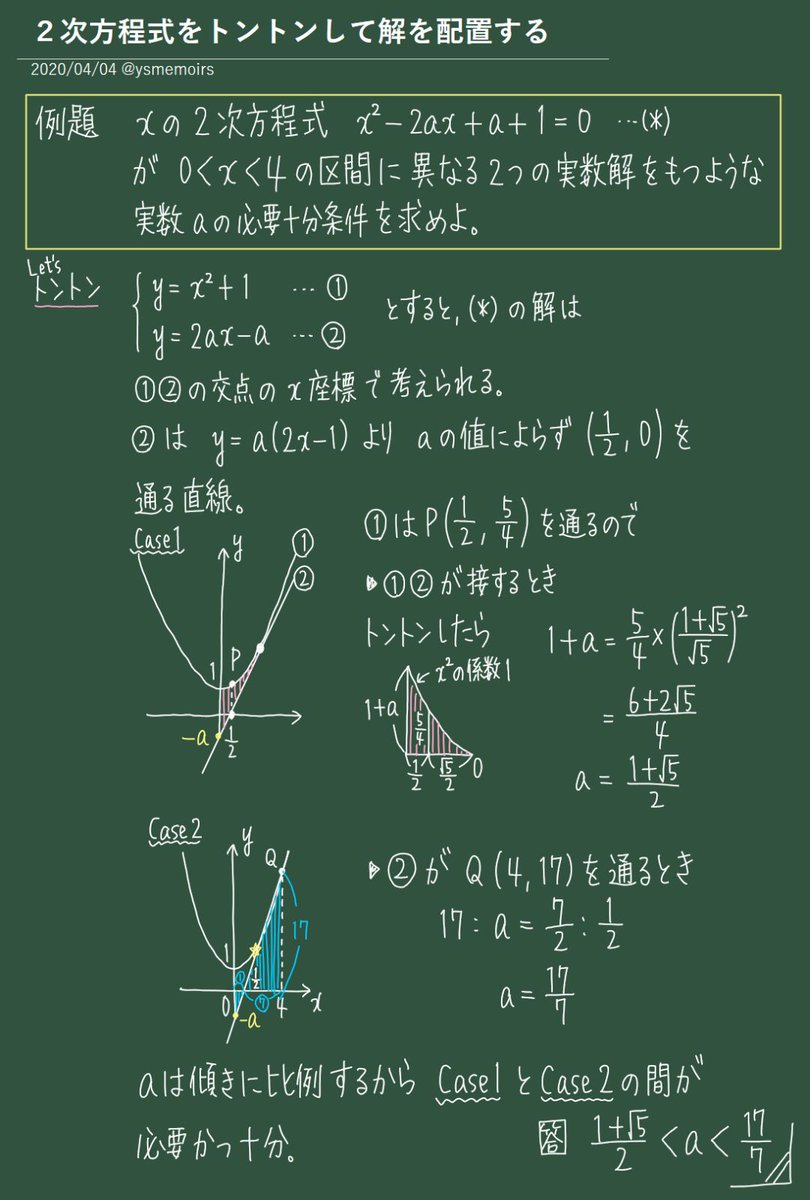 2次方程式をトントンして解を配置する
2020/04/04 @ysmemoirs
例題 xの2次方程式 x²-2ax+a+1=0 …(*)
が 0<x<4の区間に異なる2つの実数解をもつような
実数aの必要十分条件を求めよ。
Let's
トントン
y=x²+1 …①
y=2ax-a …②
とすると,(*)の解は
①②の交点のx座標で考えられる。
②は y=a(2x-1)より aの値によらず(1/2, 0)を
通る直線。
Case1
y
①
②
1
P
-a
1/2
①はP(1/2, 5/4)を通るので
▸①②が接するとき
トントンしたら
x²の係数1
1+a
5/4
1/2
√5/2
0
1+a=5/4×((1+√5)/√5)²
=(6+2√5)/4
a=(1+√5)/2
Case2
y
Q
17
1
1/2
①
⑦
0
4
x
-a
▸②がQ(4,17)を通るとき
17:a=7/2:1/2
a=17/7
aは傾きに比例するから Case1とCase2の間が
必要かつ十分。
答 (1+√5)/2<a<17/7